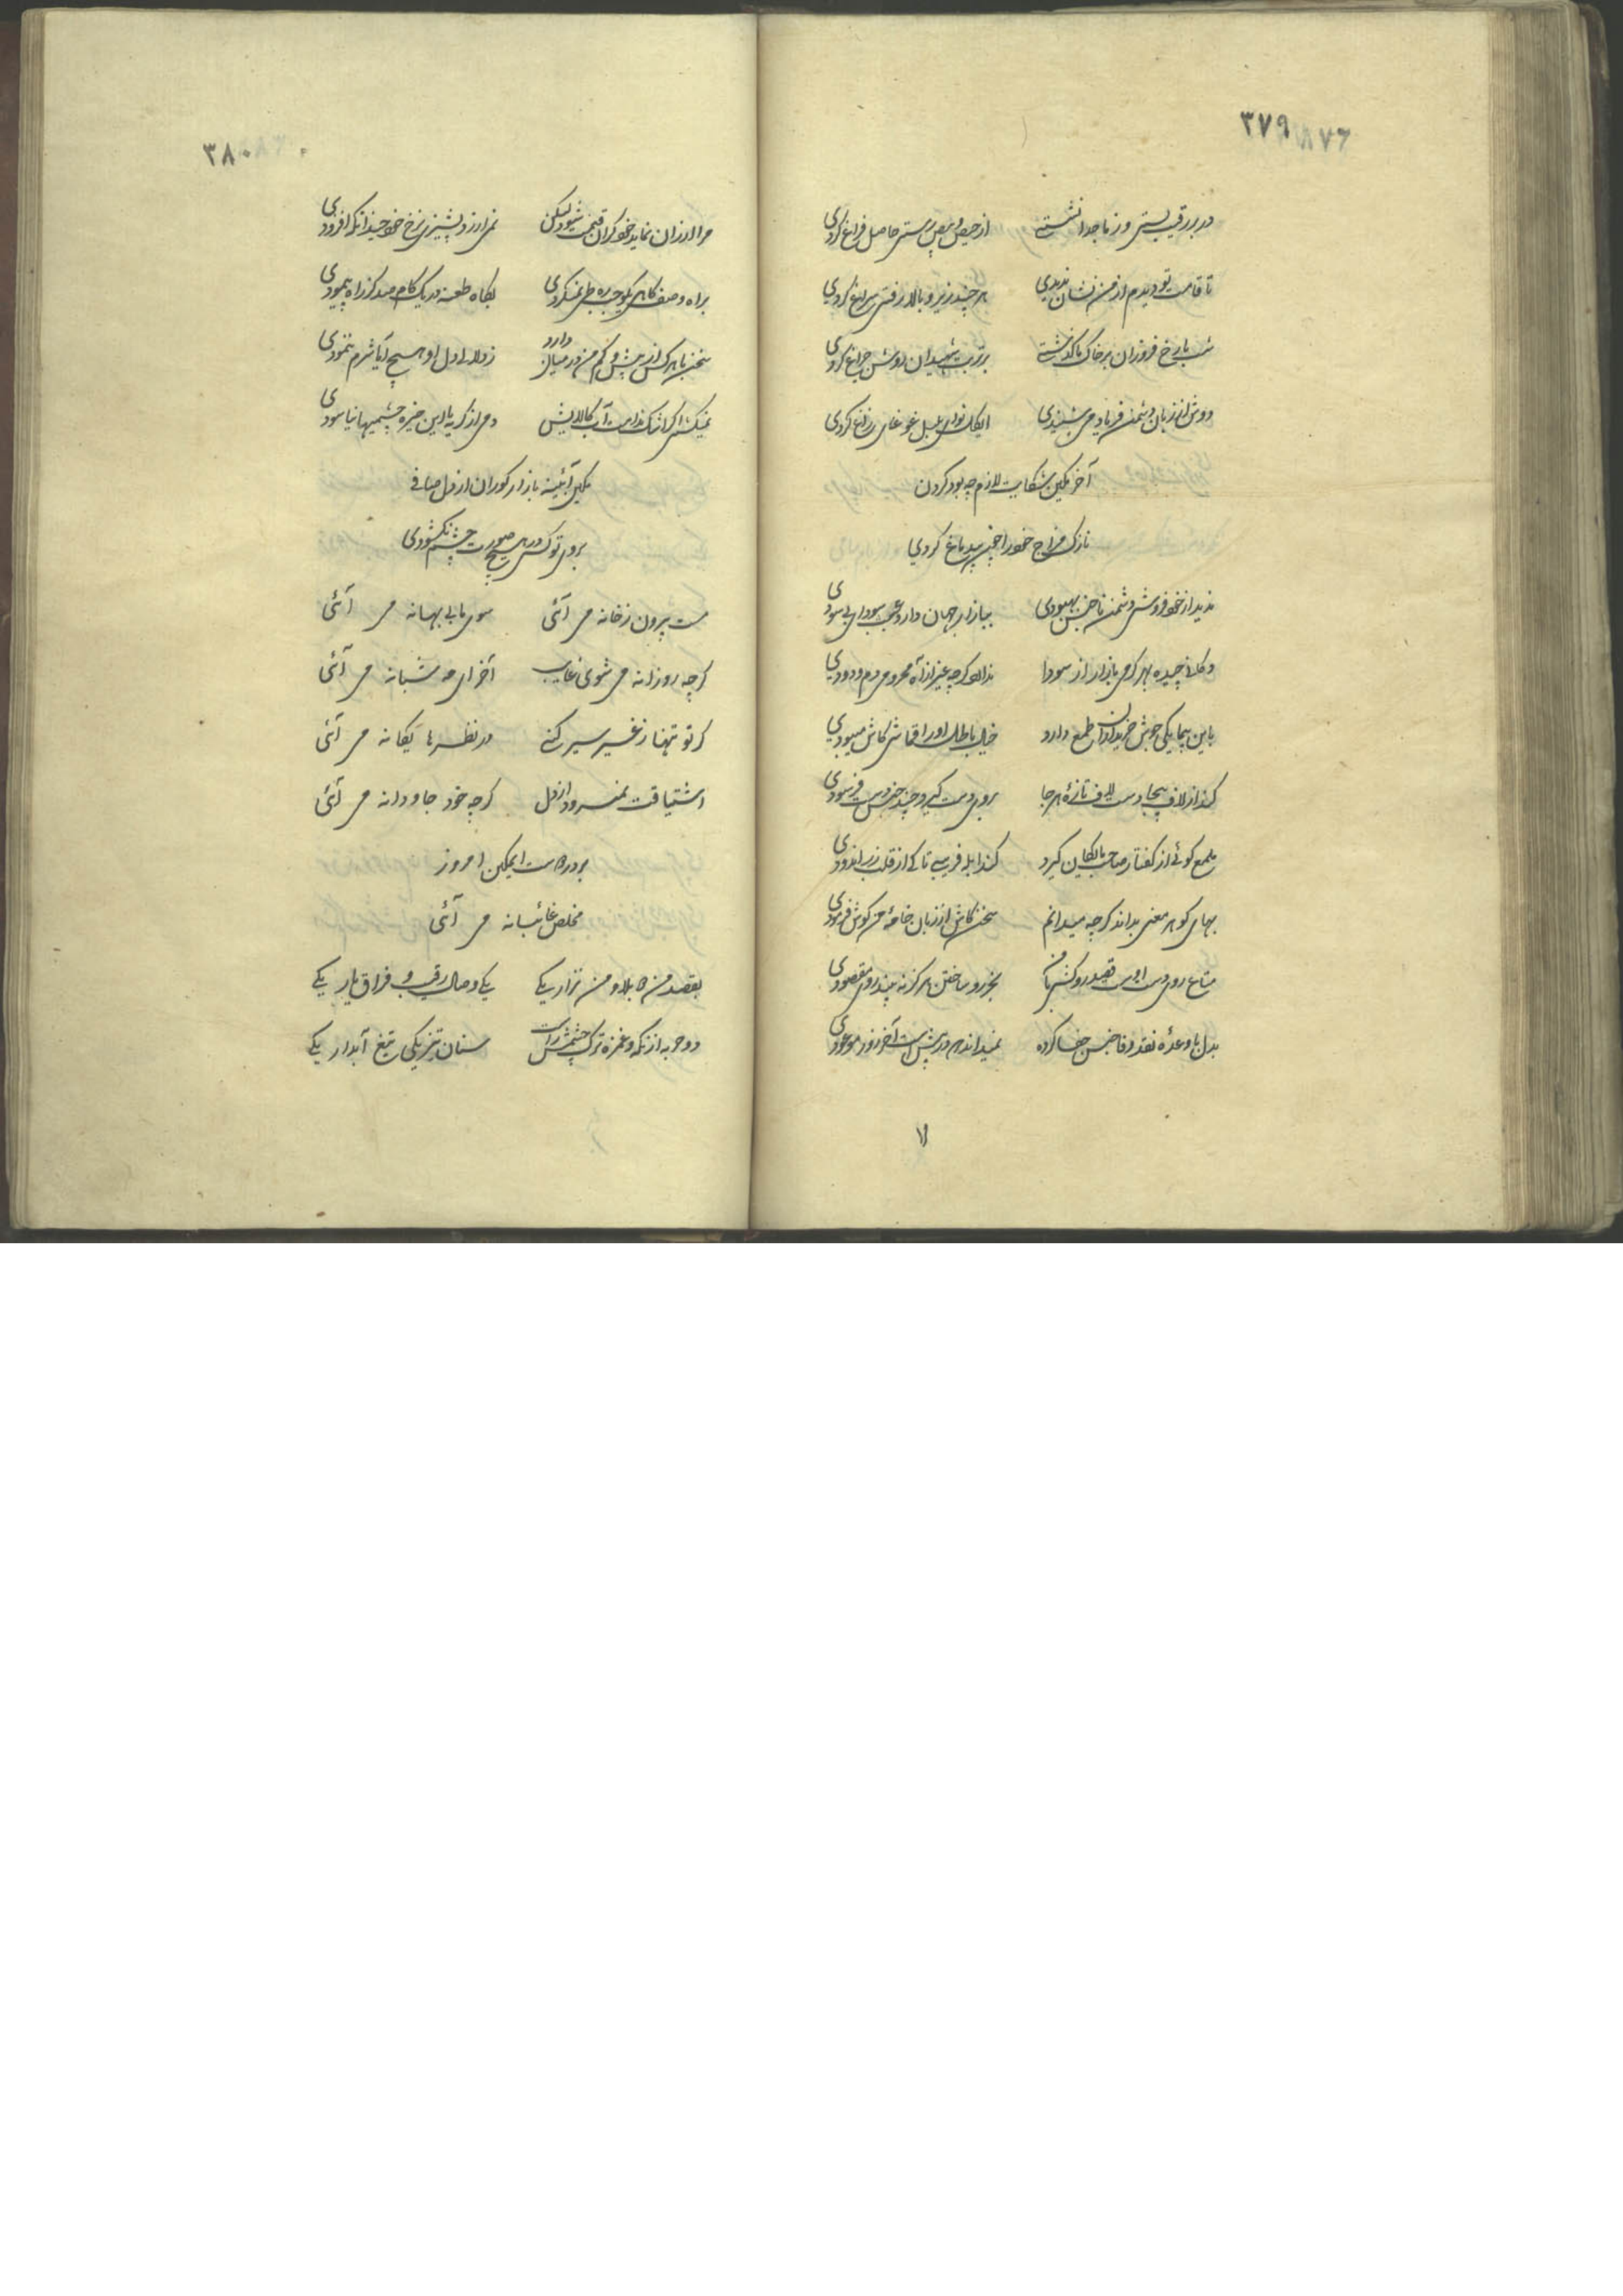 ۳۷۹ ۸۷۶
در بر رقیب بستی وز ما جدا نشستی از حیص و بیص رستی حاصل فراغ کردی
تا قامت تو دیدم از من نشان ندیدی هر چند زیر و بالا رفتی سراغ کردی
شب با رخ فروزان بر خاک ما گذشتی بر تربت شهیدان روشن چراغ کردی
دوش از زبان دشمن فریاد من شنیدی ای کل نوای بلبل غوغای زاغ کردی
آخر مکین شکایت لازم چه بود کردن
نازک مزاج خود را بی دماغ کردی
ندید از خود فروشی دشمن ناجنس بهبودی ببازار جهان دارد عجب سودای بی سودی
دکانی چیده بهر کرمی بازار از سودا ندارد کرچه غیر از آه محرومی دم و دودی
باین بیمایکی جوش خریداران طمع دارد خیال باطل او را قماشی کاش میبودی
کند از لاف بیجا دست تازه هر جا بروی دست کیرد چند جنس دست فرسودی
ملمع کوئی از کفتار صاحب مایکان کیرد کند ابله فریبی تا کی از قلب زر اندودی
بهای کوهر معنی نداند کرچه میدانم سخن کاش از زبان خامه من کوش فرمودی
متاع روی دست اوست
بدل با وعده نقد وفا جنس جفا کرده نمیداند که در پیش است آخر روز موعودی
۳۸۰
مرا ارزان نماید خود کران قیمت شود لیکن نمی ارزد پشیزی نرخ خود چندانکه افزودی
براه وصف کاهی یکوجب ره طی نمیکردی بکاه طعنه در یک کام صد کز راه پیمودی
سخن با هر کس از بیش و کم من در میان دارد ز ولا دل او هیچ آیا شرم ننمودی
دمی از کریه با این خیره چشمیها نیاسودی
مکین آئینه بازار کوران از دل صافی
بروی تو کسی در هیچ صورت چشم نکشودی
مست بیرون ز خانه می آئی سوی ما بی بهانه می آئی
کرچه روزانه می شوی غایب آخر ای مه شبانه می آئی
کر تو تنها ز غیر سیر کنی در نظرها یکانه می آئی
اشتیاقت نمیرود از دل کرچه خود جاودانه می آئی
بر در دوست ای مکین امروز
مخلص غائبانه می آئی
بقصد من دو بلا و من نزار یکی یکی وصال رقیب و فراق یار یکی
دو حربه از نکه و غمزه ترک چشمش راست سنان تیز یکی تیغ آبدار یکی